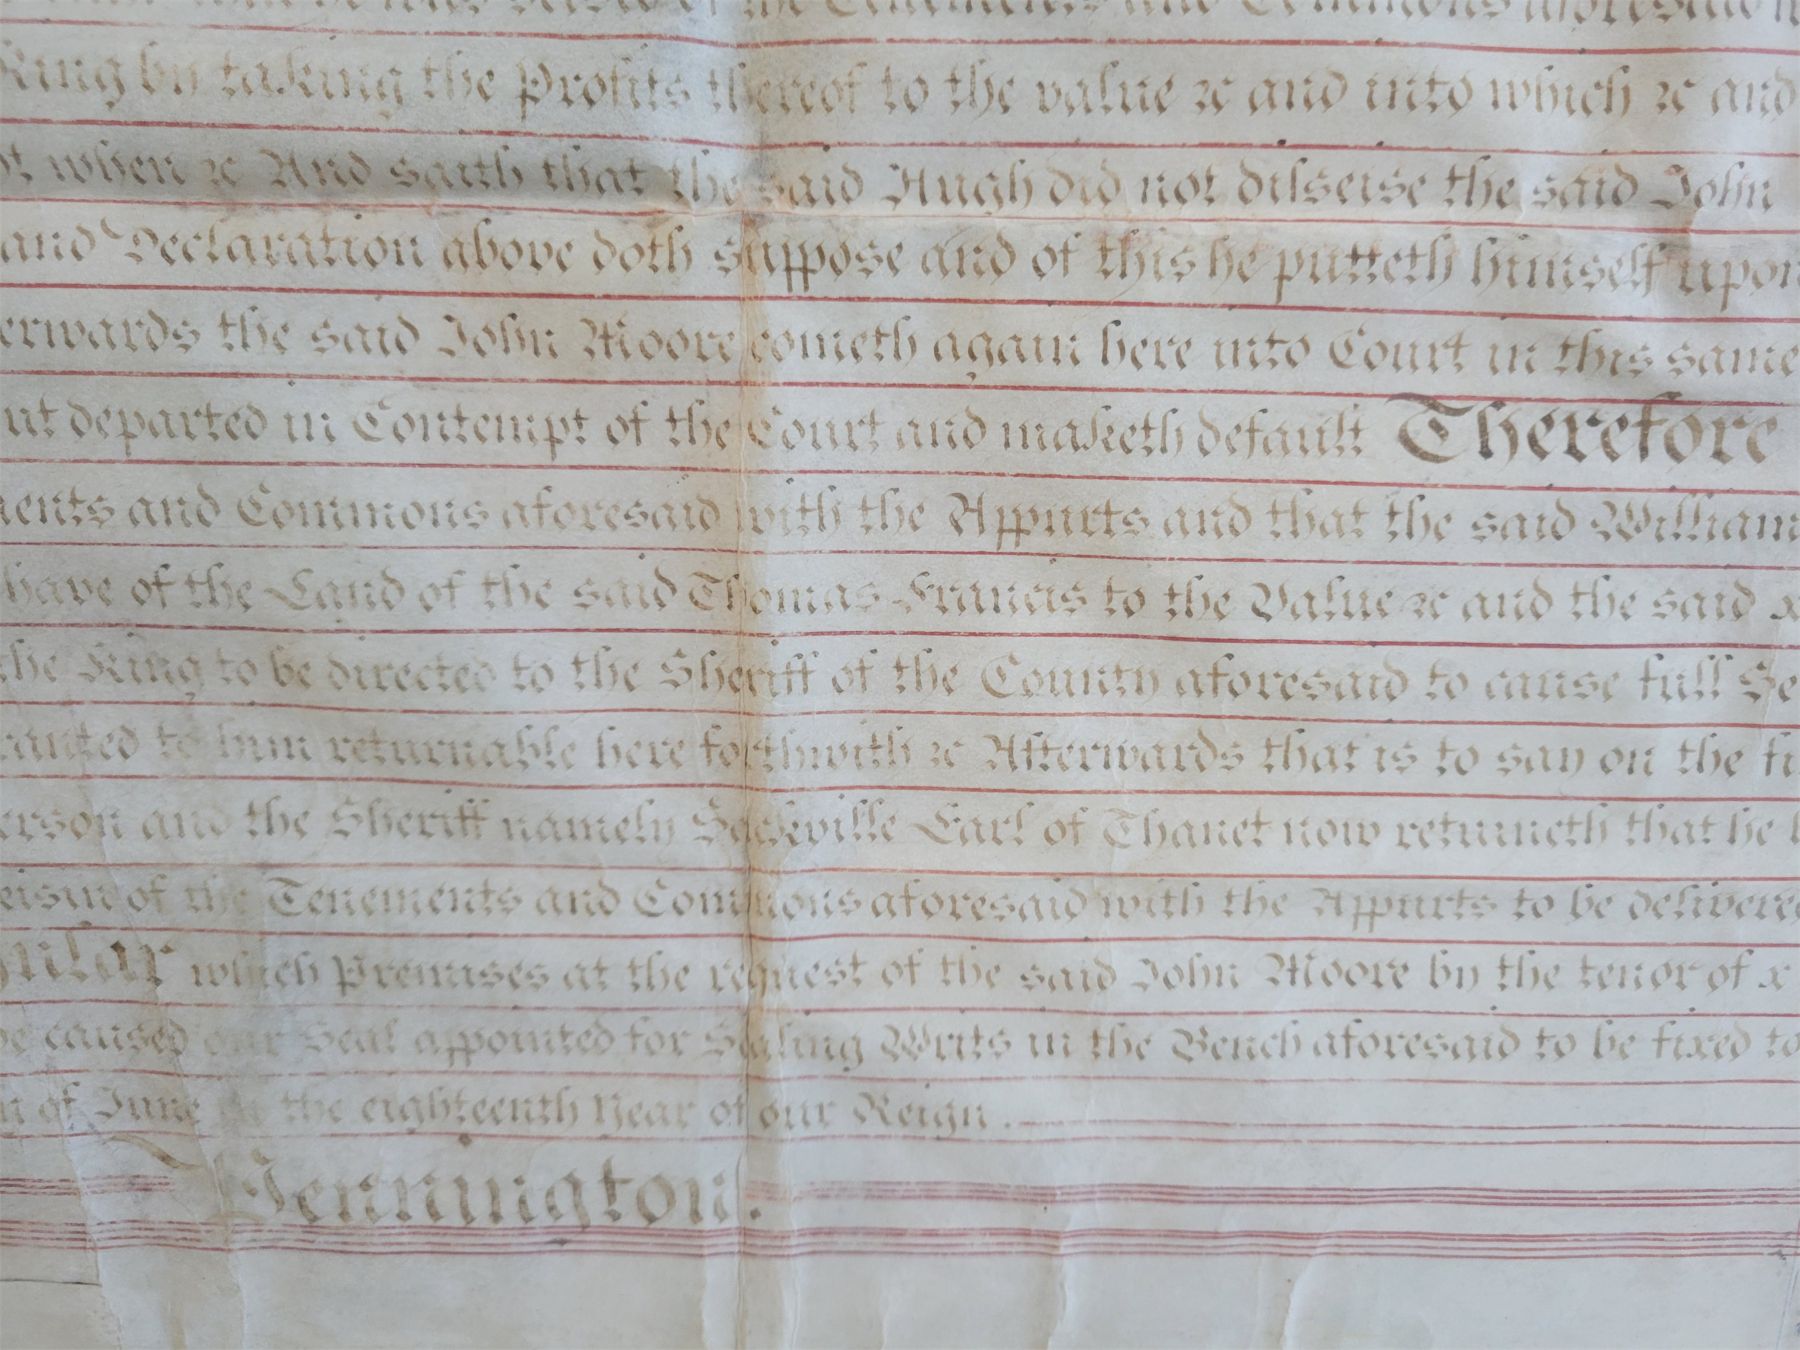 of the Tenements and Commons aforesaid
King by taking the Profits thereof to the value &c and into which &c and
when &c And saith that the said Hugh did not disseise the said John
and Declaration above doth suppose and of this he putteth himself upon
erwards the said John Moore cometh again here into Court in this same
ut departed in Contempt of the Court and maketh default Therefore
ments and Commons aforesaid with the Appurts and that the said William
have of the Land of the said Thomas Francis to the Value &c and the said
the King to be directed to the Sheriff of the County aforesaid to cause full Se
ranted to him returnable here forthwith &c Afterwards that is to say on the fi
erson and the Sheriff namely Sackville Earl of Thanet now returneth that he
eisin of the Tenements and Commons aforesaid with the Appurts to be delivered
gular which Premises at the request of the said John Moore by the tenor of
caused our Seal appointed for Sealing Writs in the Bench aforesaid to be fixed to
of June in the eighteenth Year of our Reign .
Pennington .